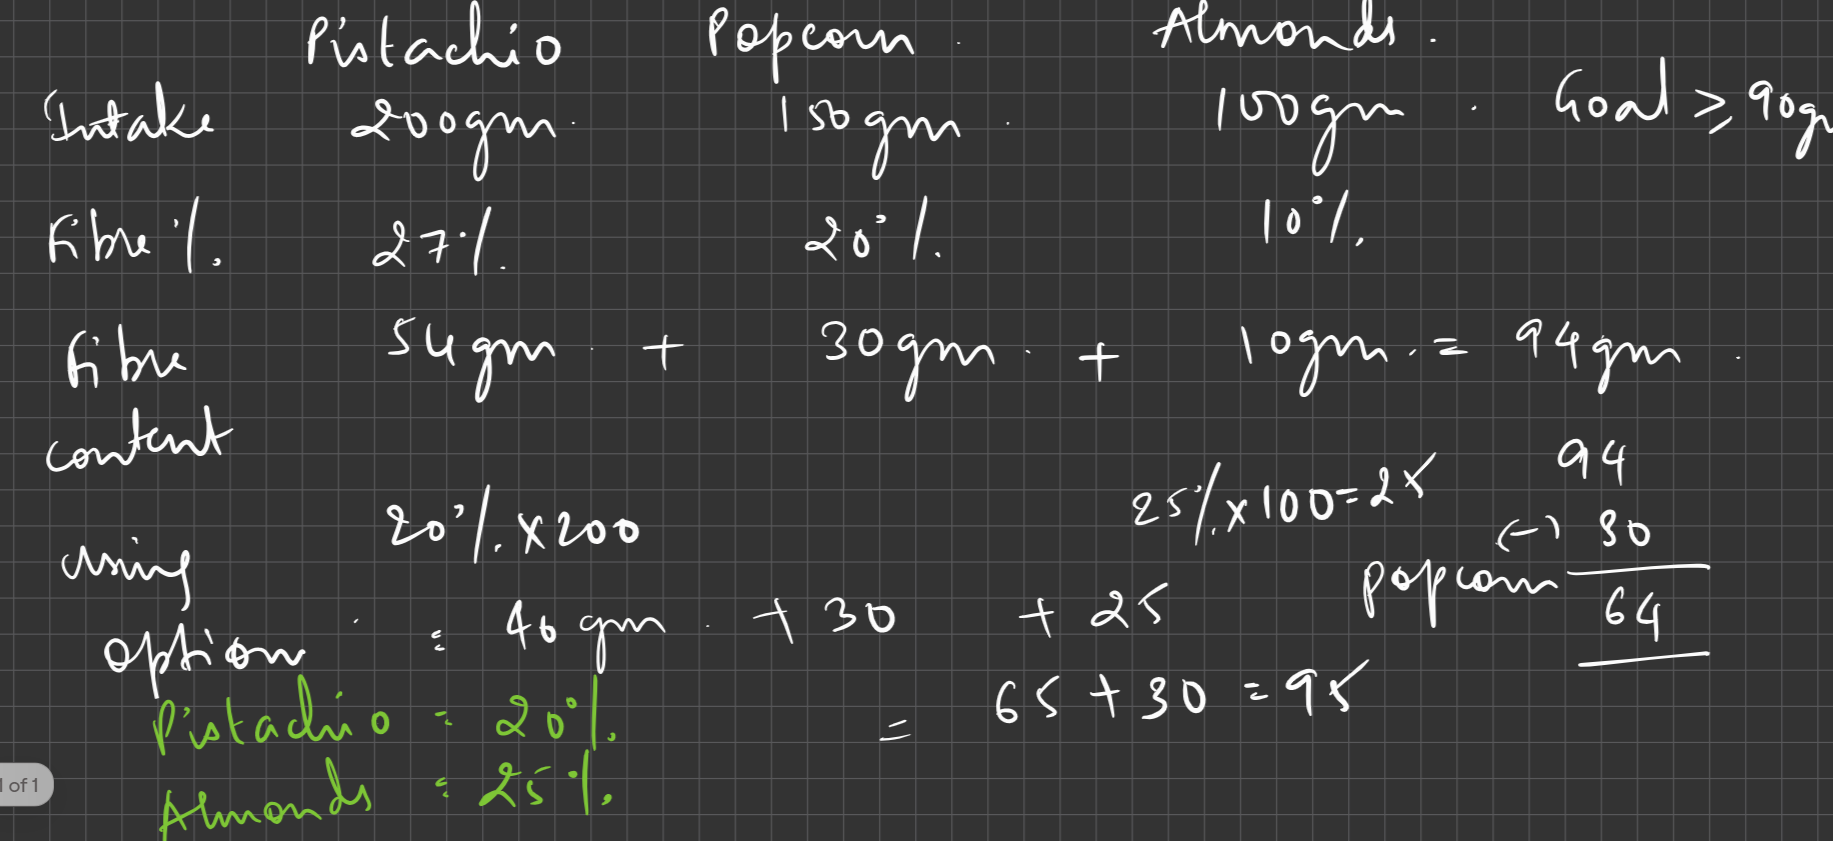 Pistachio Popcorn Almonds.
Intake 200gm. 150gm. 100gm. Goal ≥ 90g
Fibre %. 27%. 20%. 10%.
Fibre 54gm + 30gm + 10gm = 94gm
content
94
25% x 100 = 25
20% x 200
(-) 30
using
popcorn
64
option = 40gm + 30 + 25
= 65 + 30 = 95
Pistachio = 20%.
Almonds = 25%.
1 of 1